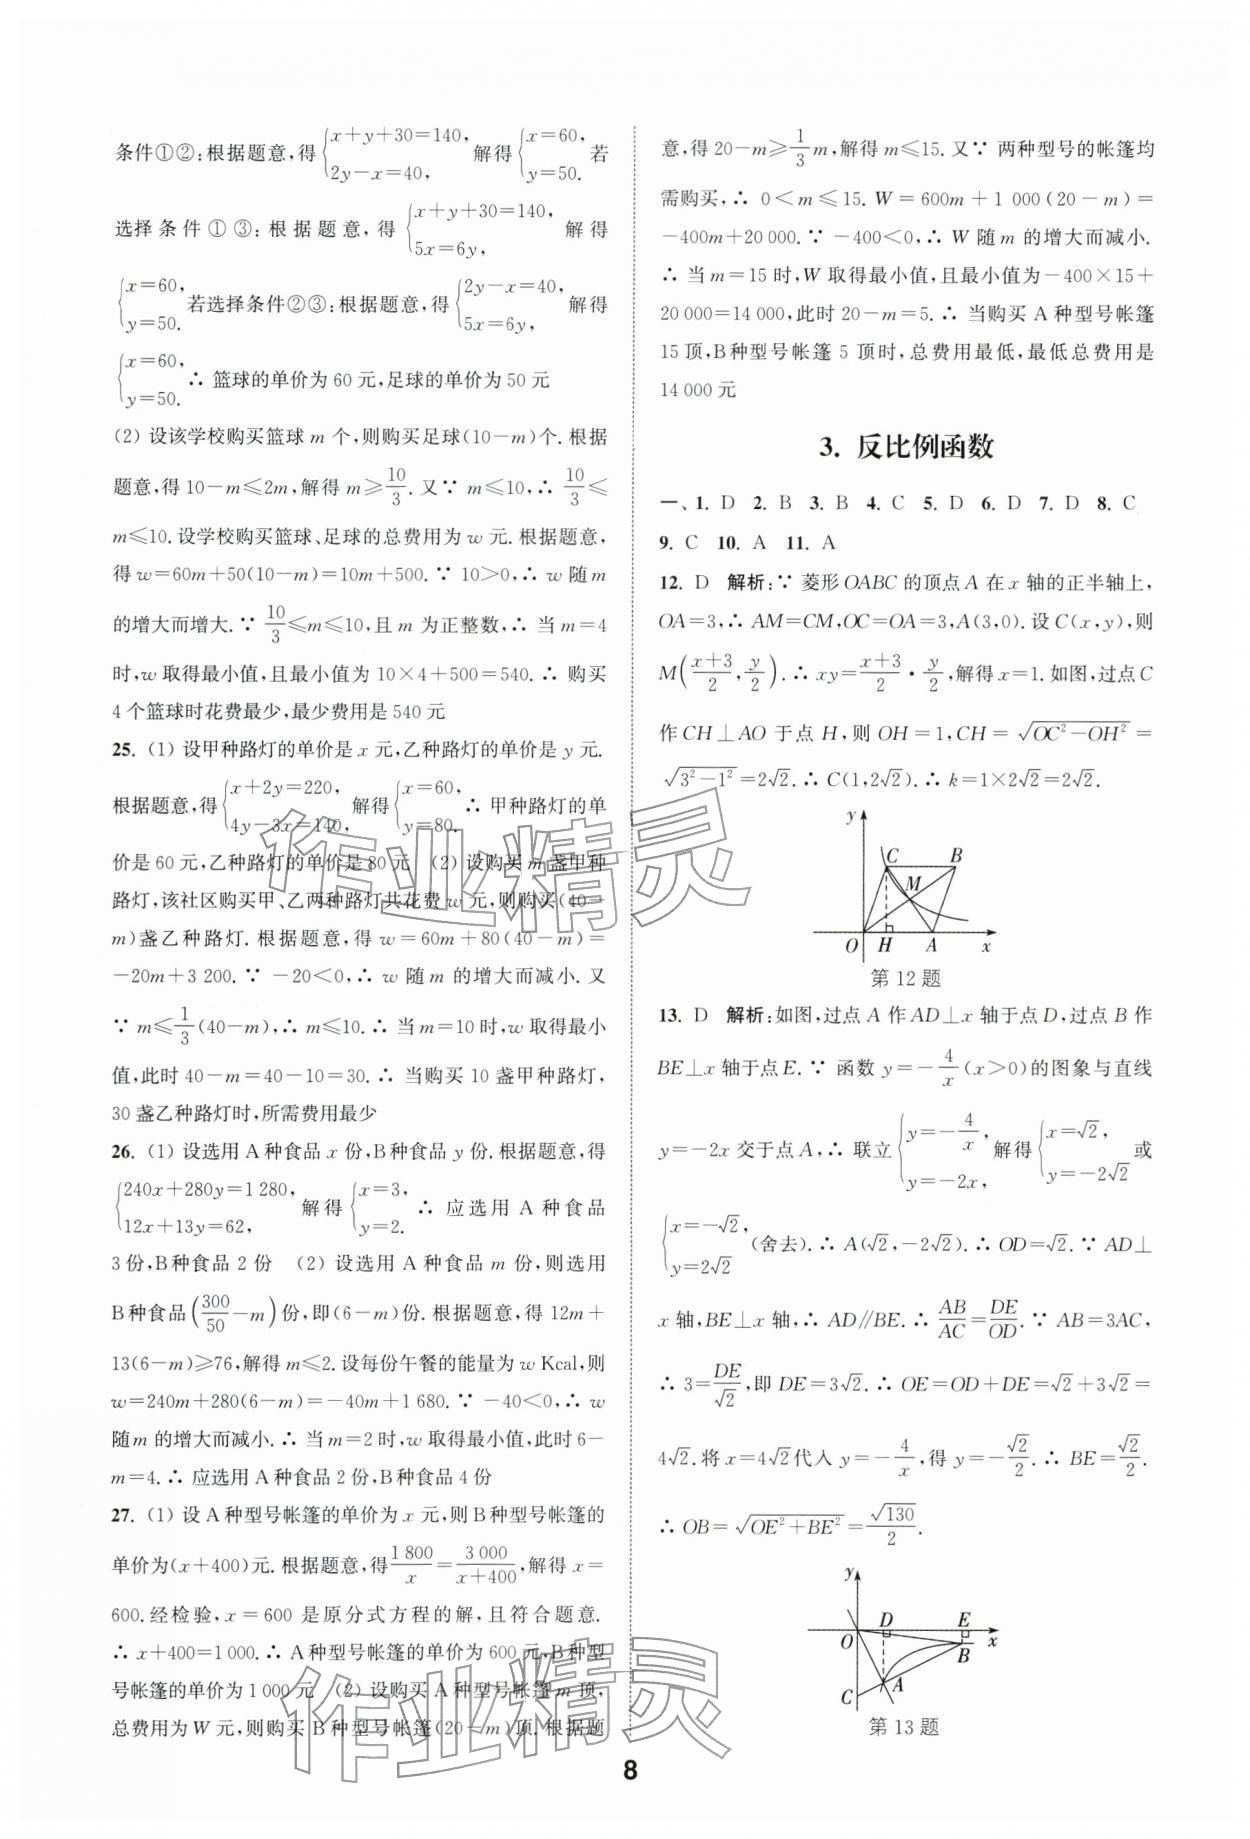 条件①②:根据题意,得{x+y+30=140, 2y-x=40, 解得{x=60, y=50. 若
选择条件①③:根据题意,得{x+y+30=140, 5x=6y, 解得
{x=60, y=50. 若选择条件②③:根据题意,得{2y-x=40, 5x=6y, 解得
{x=60, y=50. ∴ 篮球的单价为 60 元,足球的单价为 50 元
(2) 设该学校购买篮球 m 个,则购买足球(10-m)个. 根据
题意,得 10-m≤2m,解得 m≥10/3. 又∵ m≤10,∴ 10/3≤
m≤10. 设学校购买篮球、足球的总费用为 w 元. 根据题意,
得 w=60m+50(10-m)=10m+500. ∵ 10>0,∴ w 随 m
的增大而增大. ∵ 10/3≤m≤10,且 m 为正整数,∴ 当 m=4
时,w 取得最小值,且最小值为 10×4+500=540. ∴ 购买
4 个篮球时花费最少,最少费用是 540 元
25. (1) 设甲种路灯的单价是 x 元,乙种路灯的单价是 y 元.
根据题意,得{x+2y=220, 4y-3x=140, 解得{x=60, y=80. ∴ 甲种路灯的单
价是 60 元,乙种路灯的单价是 80 元 (2) 设购买 m 盏甲种
路灯,该社区购买甲、乙两种路灯共花费 w 元,则购买(40-
m)盏乙种路灯. 根据题意,得 w=60m+80(40-m)=
-20m+3 200. ∵ -20<0,∴ w 随 m 的增大而减小. 又
∵ m≤1/3(40-m),∴ m≤10. ∴ 当 m=10 时,w 取得最小
值,此时 40-m=40-10=30. ∴ 当购买 10 盏甲种路灯,
30 盏乙种路灯时,所需费用最少
26. (1) 设选用 A 种食品 x 份,B种食品 y 份. 根据题意,得
{240x+280y=1 280, 12x+13y=62, 解得{x=3, y=2. ∴ 应选用 A 种食品
3 份,B种食品 2 份 (2) 设选用 A 种食品 m 份,则选用
B种食品(300/50-m)份,即(6-m)份. 根据题意,得 12m+
13(6-m)≥76,解得 m≤2. 设每份午餐的能量为 w Kcal,则
w=240m+280(6-m)=-40m+1 680. ∵ -40<0,∴ w
随 m 的增大而减小. ∴ 当 m=2 时,w 取得最小值,此时 6-
m=4. ∴ 应选用 A 种食品 2 份,B种食品 4 份
27. (1) 设 A 种型号帐篷的单价为 x 元,则 B 种型号帐篷的
单价为(x+400)元. 根据题意,得1 800/x=3 000/(x+400),解得 x=
600. 经检验,x=600 是原分式方程的解,且符合题意.
∴ x+400=1 000. ∴ A 种型号帐篷的单价为 600 元,B 种型
号帐篷的单价为 1 000 元 (2) 设购买 A 种型号帐篷 m 顶,
总费用为 W 元,则购买 B 种型号帐篷(20-m)顶. 根据题
意,得 20-m≥1/3m,解得 m≤15. 又∵ 两种型号的帐篷均
需购买,∴ 0<m≤15. W=600m+1 000(20-m)=
-400m+20 000. ∵ -400<0,∴ W 随 m 的增大而减小.
∴ 当 m=15 时,W 取得最小值,且最小值为-400×15+
20 000=14 000,此时 20-m=5. ∴ 当购买 A 种型号帐篷
15 顶,B种型号帐篷 5 顶时,总费用最低,最低总费用是
14 000 元
3. 反比例函数
一、1. D 2. B 3. B 4. C 5. D 6. D 7. D 8. C
9. C 10. A 11. A
12. D 解析:∵ 菱形 OABC 的顶点 A 在 x 轴的正半轴上,
OA=3,∴ AM=CM,OC=OA=3,A(3,0). 设 C(x,y),则
M((x+3)/2,y/2). ∴ xy=(x+3)/2·y/2,解得 x=1. 如图,过点 C
作 CH⊥AO 于点 H,则 OH=1,CH=√(OC²-OH²)=
√(3²-1²)=2√2. ∴ C(1,2√2). ∴ k=1×2√2=2√2.
y
C B
M
O H A x
第 12 题
13. D 解析:如图,过点 A 作 AD⊥x 轴于点 D,过点 B 作
BE⊥x 轴于点 E. ∵ 函数 y=-4/x(x>0)的图象与直线
y=-2x 交于点 A,∴ 联立{y=-4/x, y=-2x, 解得{x=√2, y=-2√2 或
{x=-√2, y=2√2 (舍去). ∴ A(√2,-2√2). ∴ OD=√2. ∵ AD⊥
x 轴,BE⊥x 轴,∴ AD∥BE. ∴ AB/AC=DE/OD. ∵ AB=3AC,
∴ 3=DE/√2,即 DE=3√2. ∴ OE=OD+DE=√2+3√2=
4√2. 将 x=4√2代入 y=-4/x,得 y=-√2/2. ∴ BE=√2/2.
∴ OB=√(OE²+BE²)=√130/2.
y
D E
O x
B
A
C
第 13 题
8
作业精灵
作业精灵